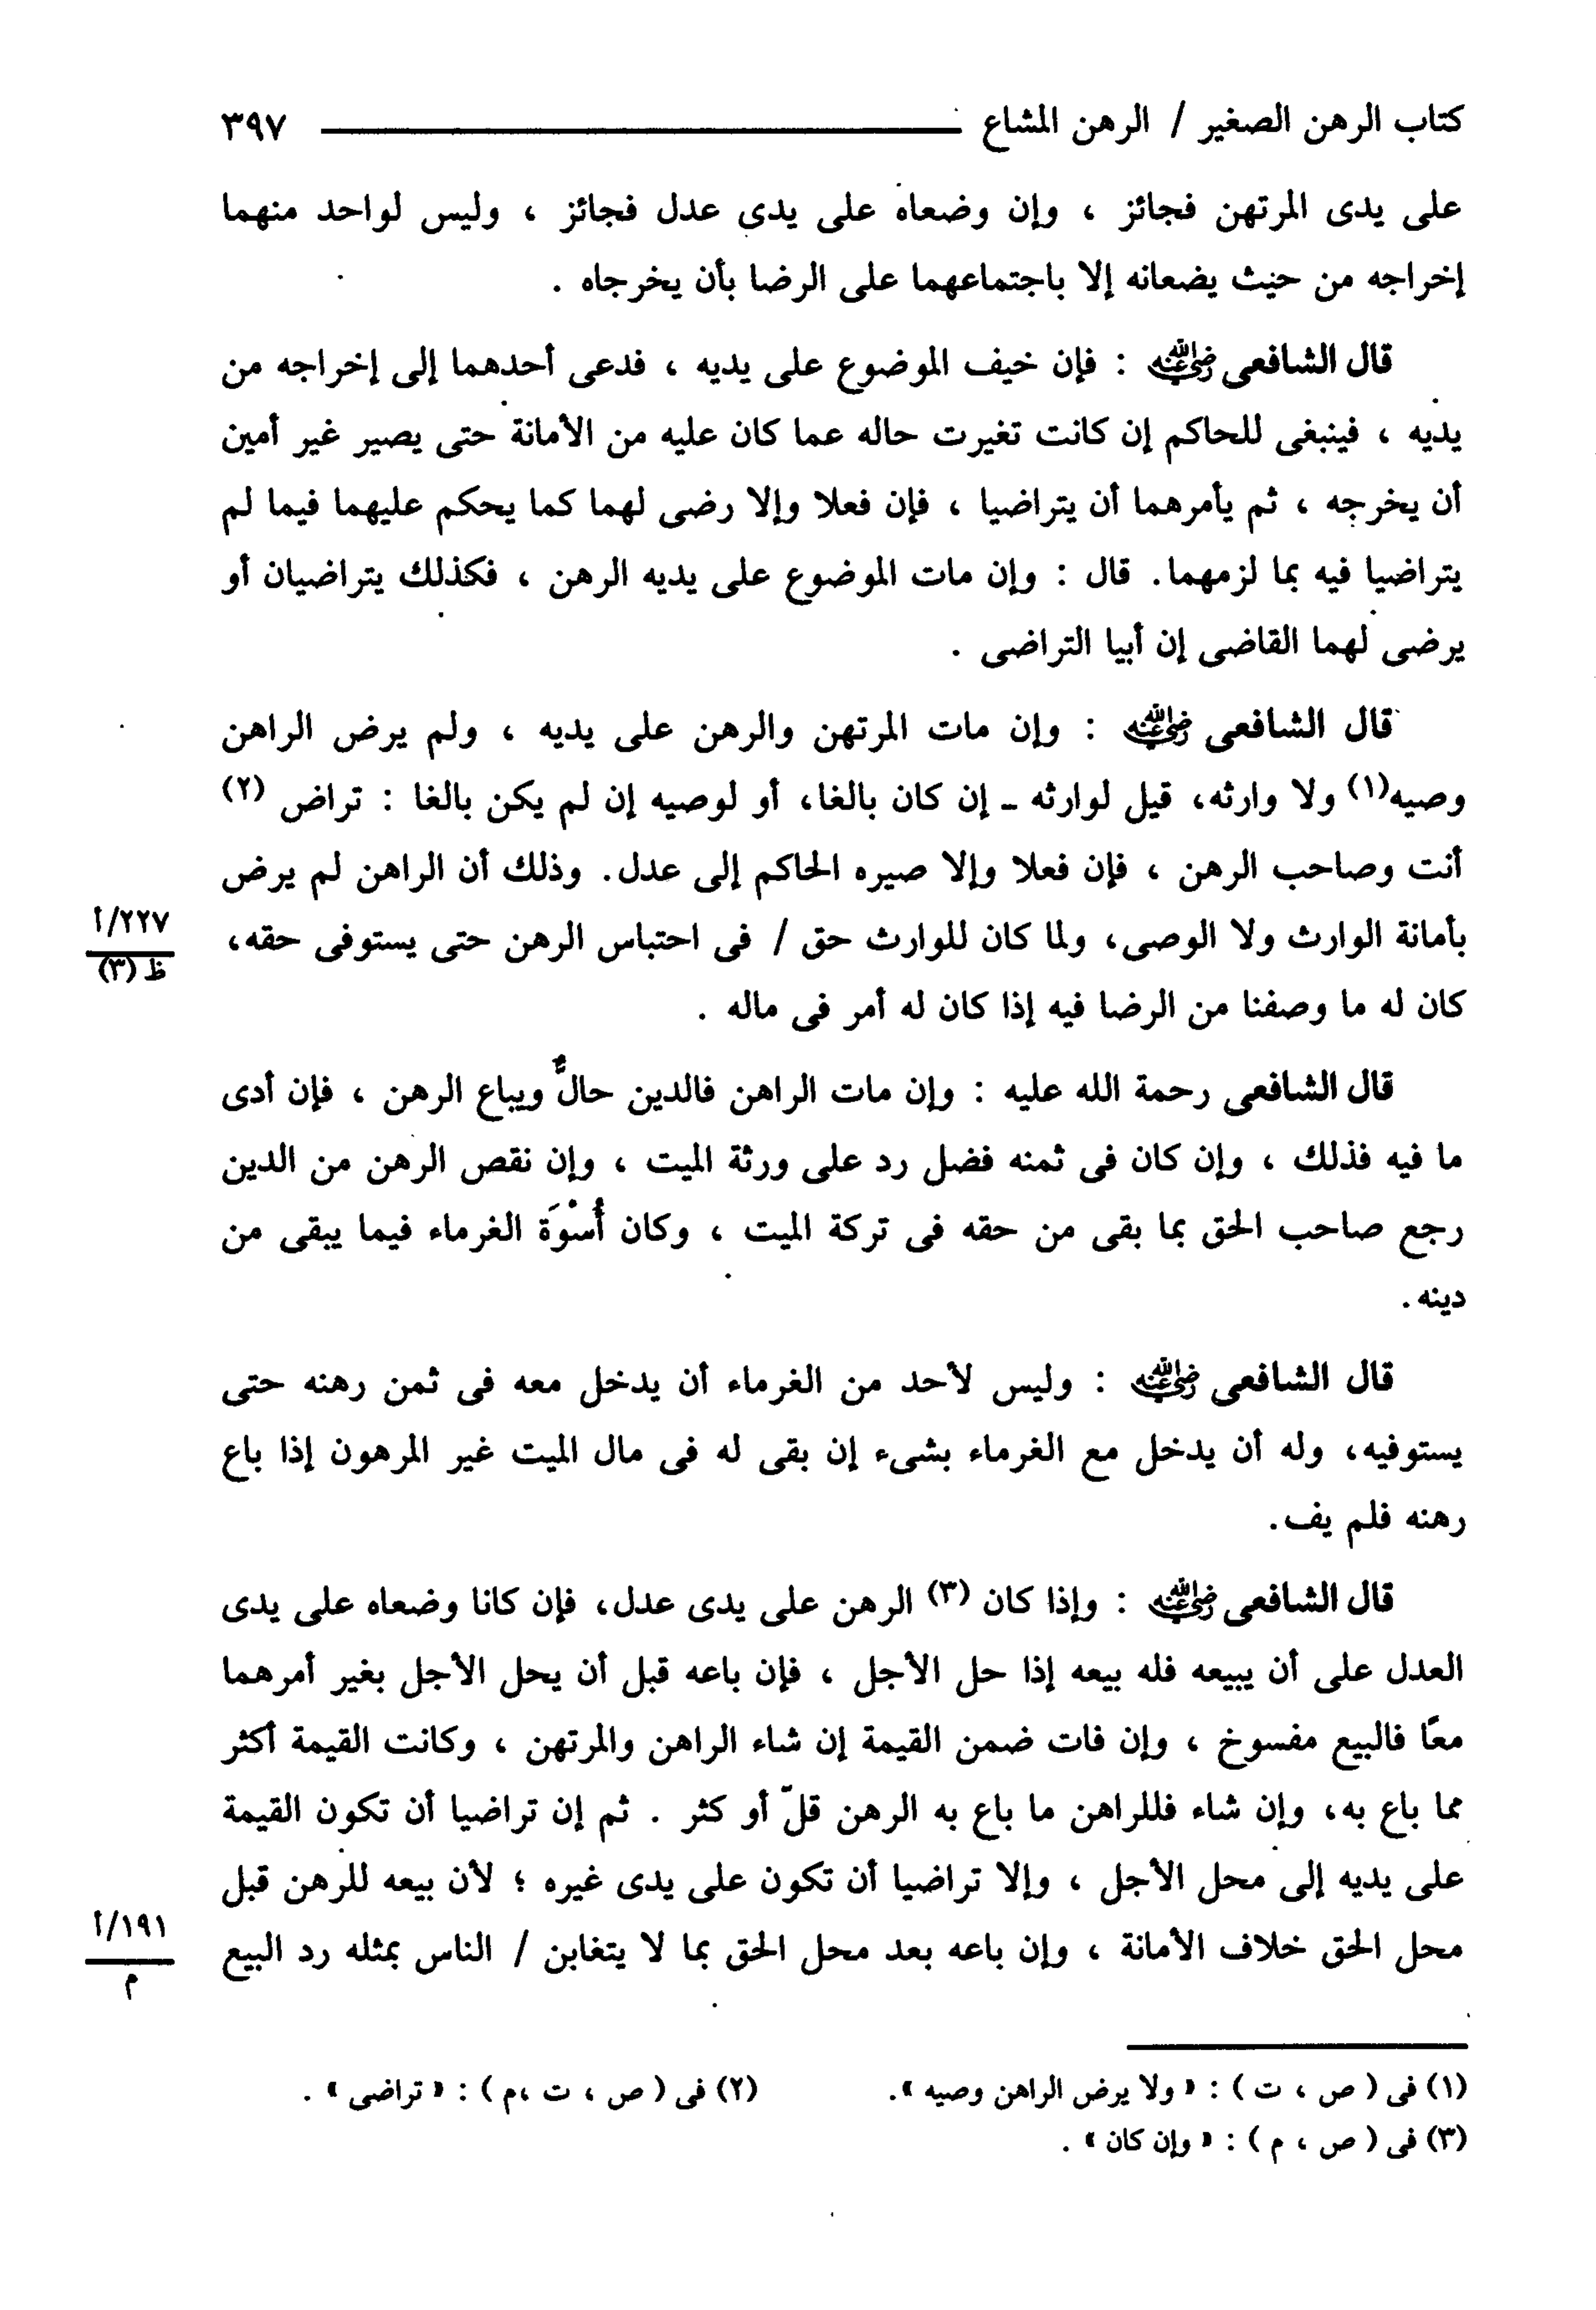 كتاب الرهن الصغير / الرهن المشاع ٣٩٧
على يدى المرتهن فجائز ، وإن وضعاه على يدى عدل فجائز ، وليس لواحد منهما
إخراجه من حيث يضعانه إلا باجتماعهما على الرضا بأن يخرجاه .
قال الشافعى رضي الله عنه : فإن خيف الموضوع على يديه ، فدعى أحدهما إلى إخراجه من
يديه ، فينبغى للحاكم إن كانت تغيرت حاله عما كان عليه من الأمانة حتى يصير غير أمين
أن يخرجه ، ثم يأمرهما أن يتراضيا ، فإن فعلا وإلا رضى لهما كما يحكم عليهما فيما لم
يتراضيا فيه بما لزمهما. قال : وإن مات الموضوع على يديه الرهن ، فكذلك يتراضيان أو
يرضى لهما القاضى إن أبيا التراضى .
قال الشافعى رضي الله عنه : وإن مات المرتهن والرهن على يديه ، ولم يرض الراهن
وصيه(١) ولا وارثه، قيل لوارثه ـ إن كان بالغا، أو لوصيه إن لم يكن بالغا : تراض (٢)
أنت وصاحب الرهن ، فإن فعلا وإلا صيره الحاكم إلى عدل. وذلك أن الراهن لم يرض
بأمانة الوارث ولا الوصى، ولما كان للوارث حق / فى احتباس الرهن حتى يستوفى حقه،
٢٢٧/أ
ظ (٣)
كان له ما وصفنا من الرضا فيه إذا كان له أمر فى ماله .
قال الشافعى رحمة الله عليه : وإن مات الراهن فالدين حالٌّ ويباع الرهن ، فإن أدى
ما فيه فذلك ، وإن كان فى ثمنه فضل رد على ورثة الميت ، وإن نقص الرهن من الدين
رجع صاحب الحق بما بقى من حقه فى تركة الميت ، وكان أُسْوَة الغرماء فيما يبقى من
دينه .
قال الشافعى رضي الله عنه : وليس لأحد من الغرماء أن يدخل معه فى ثمن رهنه حتى
يستوفيه، وله أن يدخل مع الغرماء بشىء إن بقى له فى مال الميت غير المرهون إذا باع
رهنه فلم يف.
قال الشافعى رضي الله عنه : وإذا كان (٣) الرهن على يدى عدل، فإن كانا وضعاه على يدى
العدل على أن يبيعه فله بيعه إذا حل الأجل ، فإن باعه قبل أن يحل الأجل بغير أمرهما
معًا فالبيع مفسوخ ، وإن فات ضمن القيمة إن شاء الراهن والمرتهن ، وكانت القيمة أكثر
مما باع به، وإن شاء فللراهن ما باع به الرهن قلّ أو كثر . ثم إن تراضيا أن تكون القيمة
على يديه إلى محل الأجل ، وإلا تراضيا أن تكون على يدى غيره ؛ لأن بيعه للرهن قبل
محل الحق خلاف الأمانة ، وإن باعه بعد محل الحق بما لا يتغابن / الناس بمثله رد البيع
١٩١/أ
م
(١) فى ( ص ، ت ) : « ولا يرض الراهن وصيه ».
(٢) فى ( ص ، ت ،م ) : « تراضى » .
(٣) فى ( ص ، م ) : « وإن كان » .